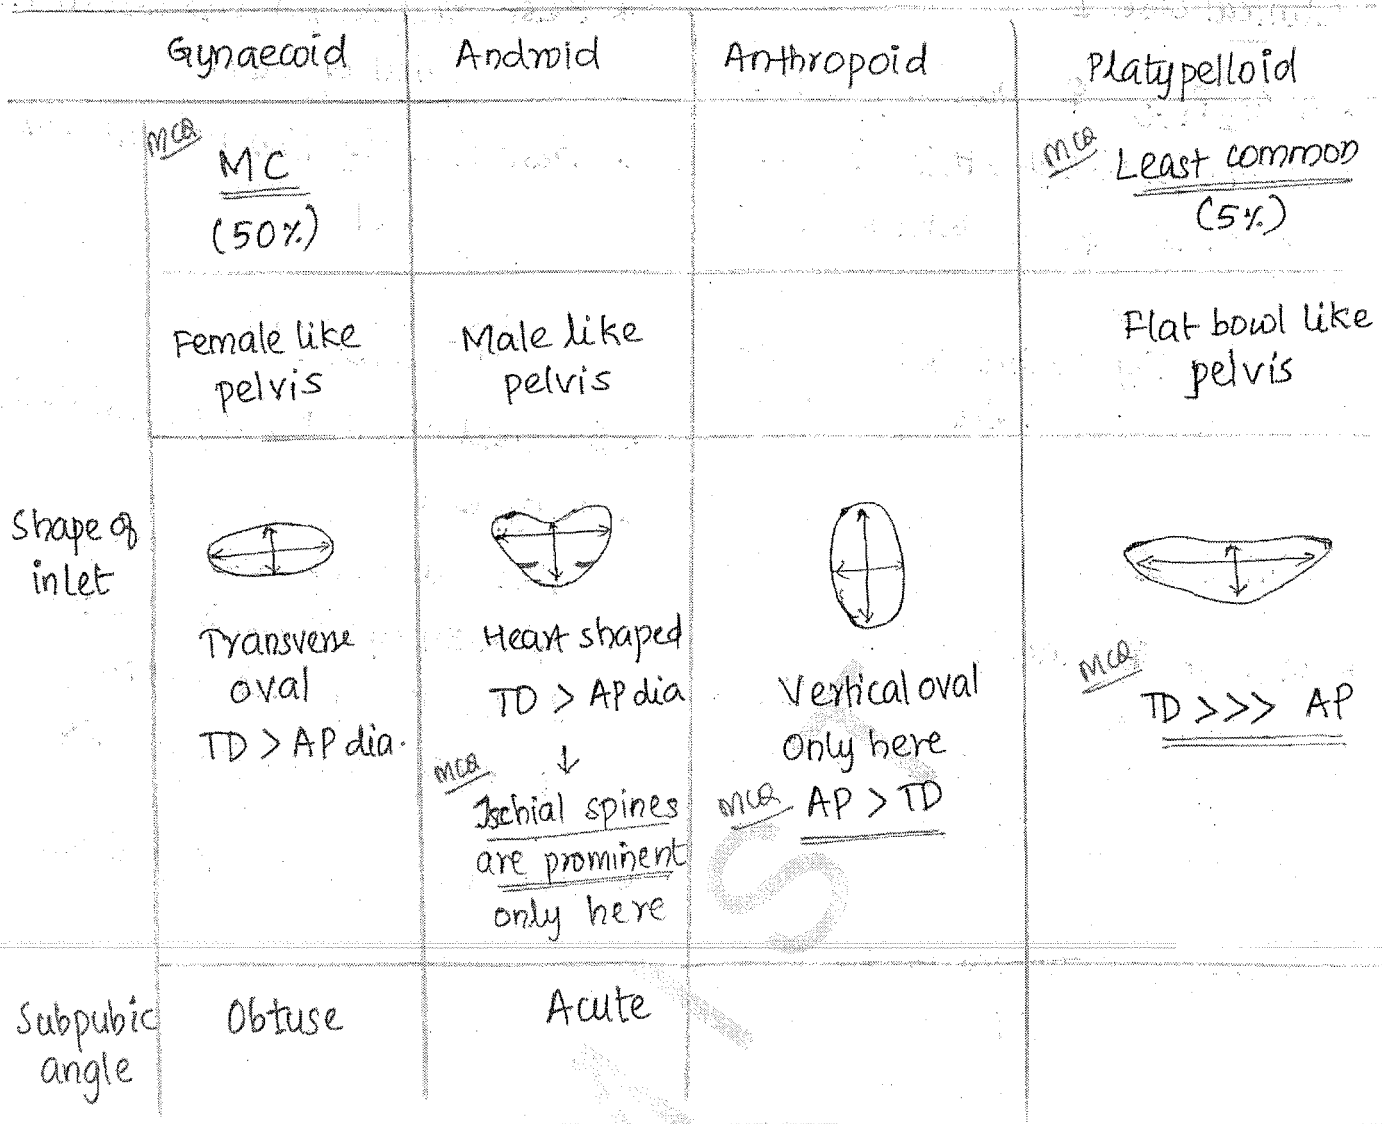 Gynaecoid Android Anthropoid Platypelloid
MCQ
MC
(50%)
MCQ
Least common
(5%)
Female like
pelvis
Male like
pelvis
Flat bowl like
pelvis
Shape of
inlet
Transverse
oval
TD > AP dia.
Heart shaped
TD > AP dia
↓
MCQ
Ischial spines
are prominent
only here
Vertical oval
only here
MCQ AP > TD
MCQ
TD >>> AP
Subpubic
angle
Obtuse
Acute